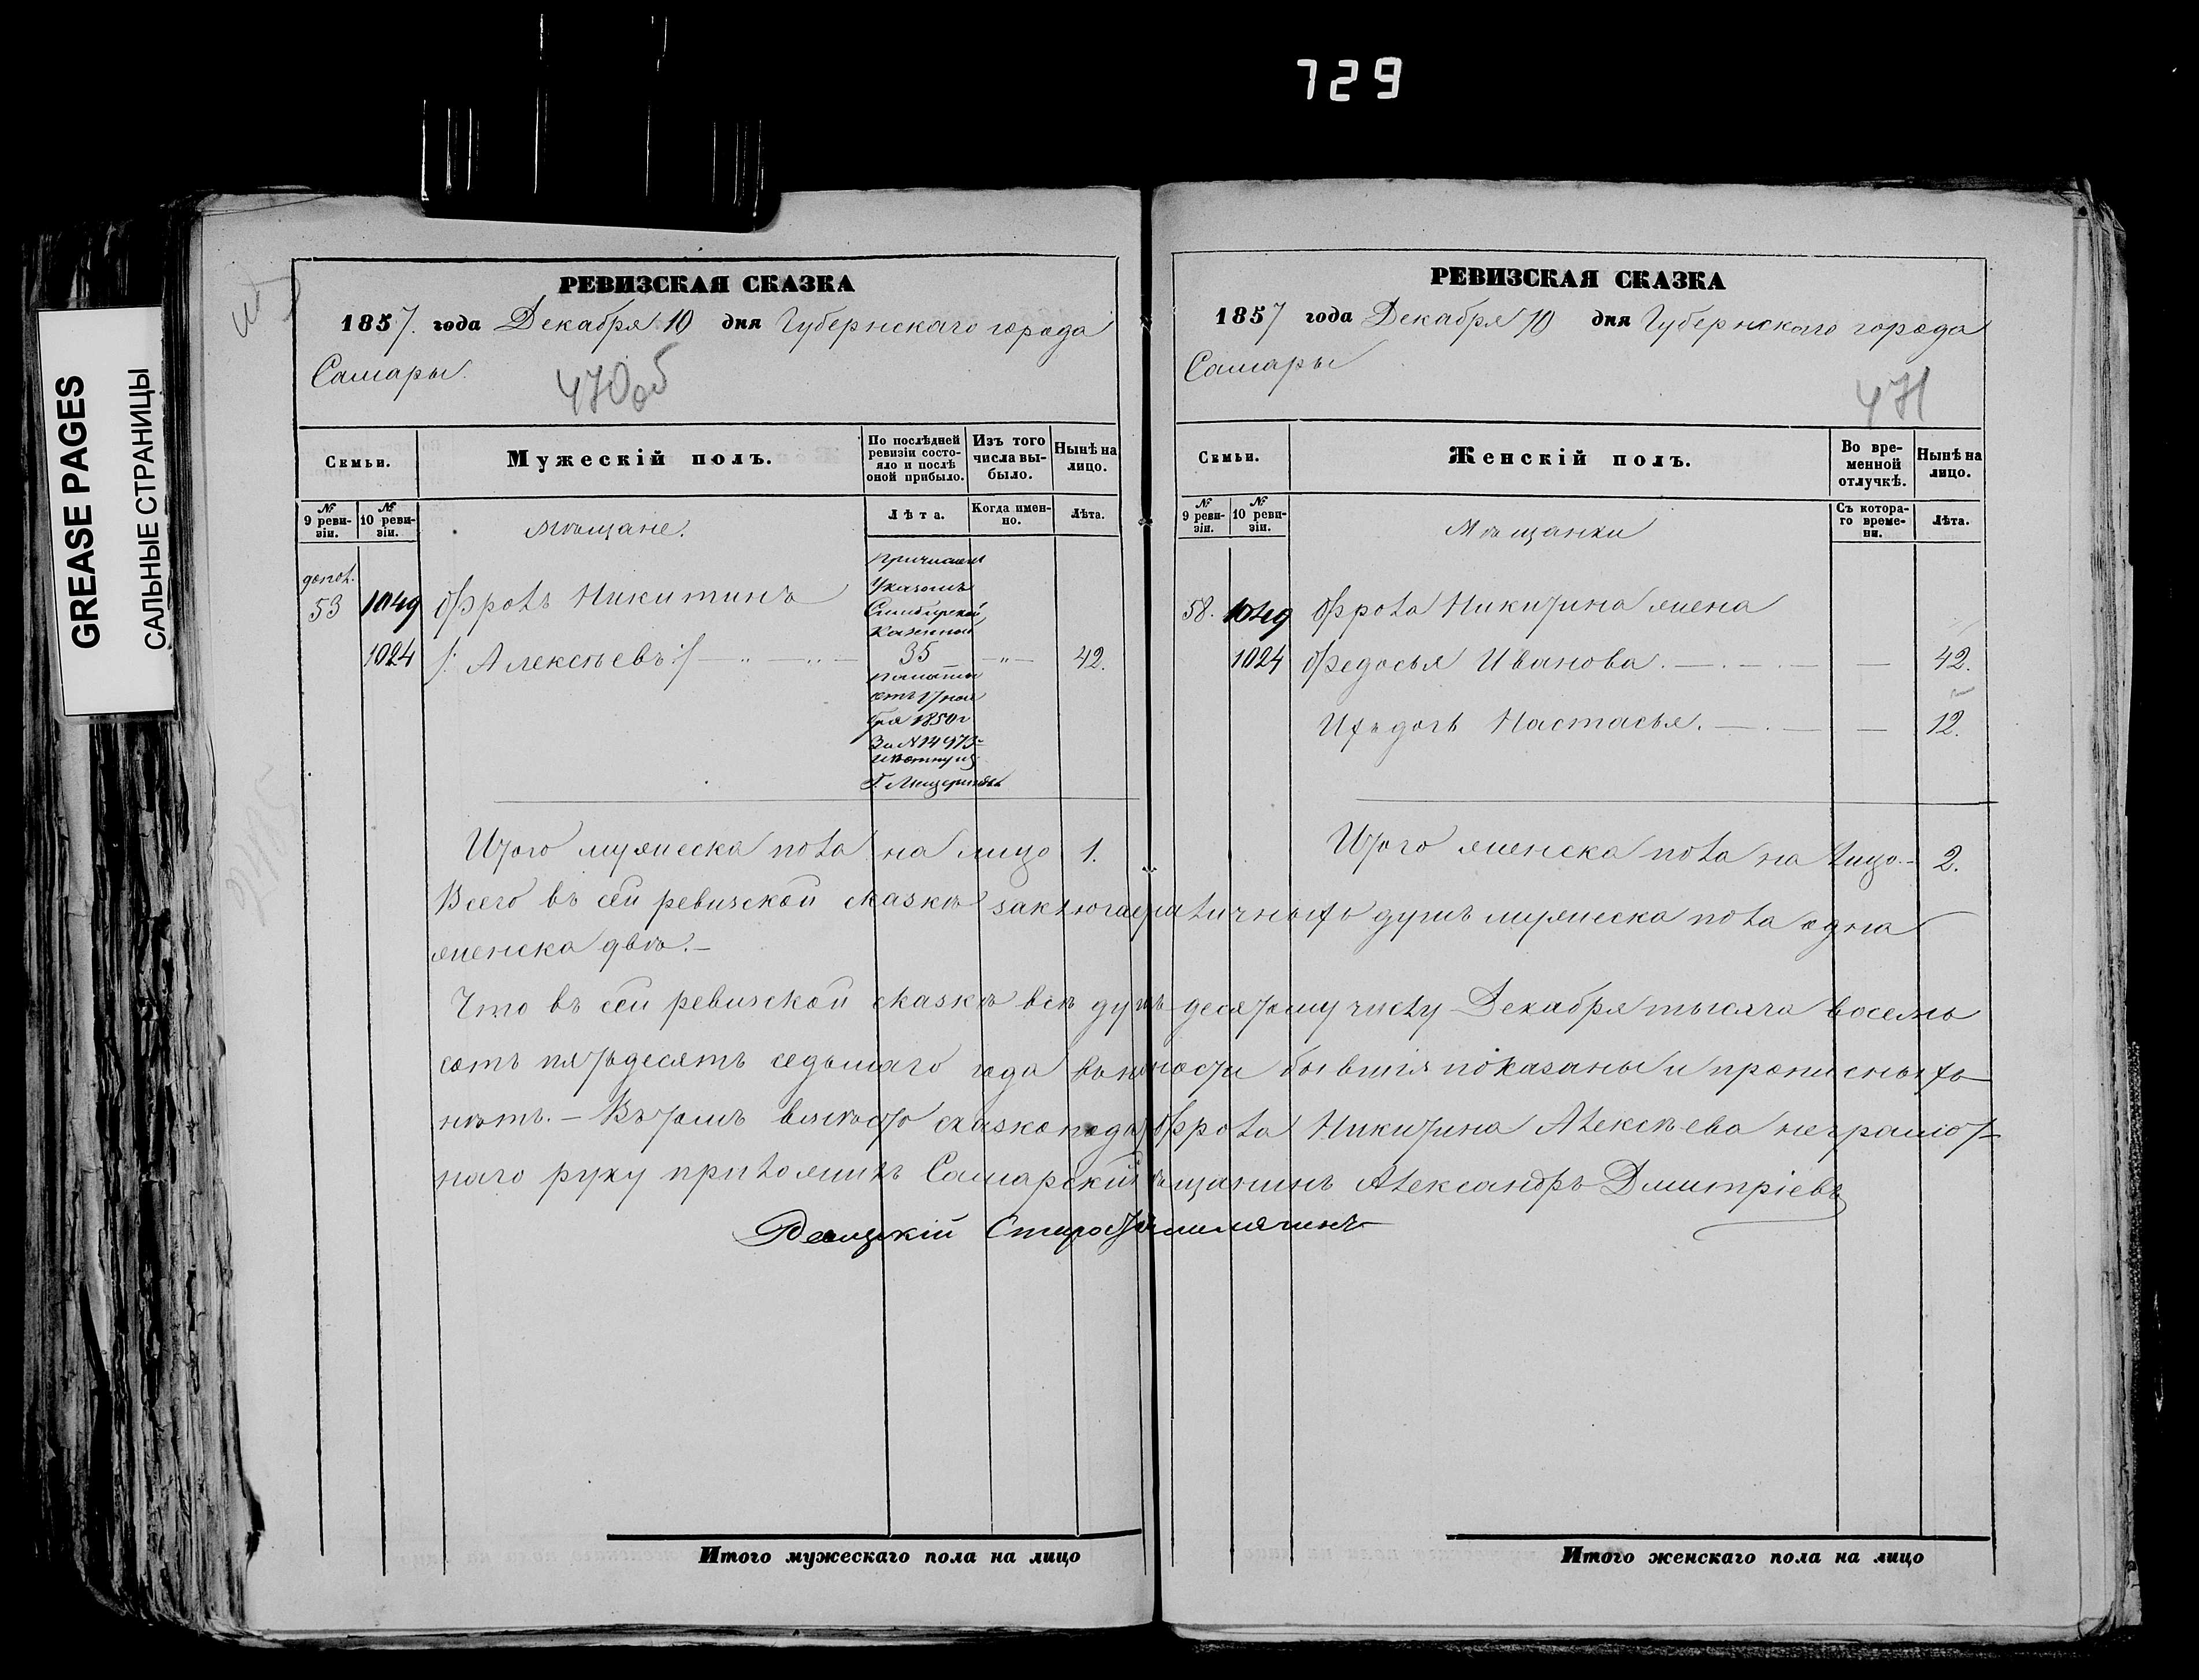 729
GREASE PAGES
САЛЬНЫЕ СТРАНИЦЫ
РЕВИЗСКАЯ СКАЗКА
1857. года Декабря 10 дня Губернскаго города
Самары.
470об
Семьи.
Мужескій полъ.
По послѣдней ревизіи состояло и послѣ оной прибыло.
Изъ того числа выбыло.
Нынѣ на лицо.
№ 9 ревизіи.
№ 10 ревизіи.
Лѣта.
Когда именно.
Лѣта.
Мѣщане.
допол.
53 1049 Фролъ Никитинъ
1024 /: Алексѣевъ :/ — „ — „ — 35 — „ — 42.
Причислен
Указомъ
Симбирской
Казенной
Палаты
отъ 17 ноя
бря 1850 г
За № 14973
Итого мужеска пола на лицо 1.
РЕВИЗСКАЯ СКАЗКА
1857 года Декабря 10 дня Губернскаго города
Самары
471
Семьи.
Женскій полъ.
Во временной отлучкѣ.
Нынѣ на лицо.
№ 9 ревизіи.
№ 10 ревизіи.
Съ котораго времени.
Лѣта.
Мѣщанки
58. 1049 Фрола Никитина жена
1024 Федосья Иванова. — . — . — — 42.
Ихъ дочь Настасья. — . — — 12.
Итого женска пола на лицо. – 2.
Всего въ сей ревизской сказкѣ заключается наличныхъ душъ мужеска пола одна
женска двѣ. –
Что въ сей ревизской сказкѣ всѣ душъ десятому числу Декабря тысяча восемь
сотъ пятьдесятъ седьмаго года въ наличности бывшія показаны и прописныхъ
нѣтъ. – Въ томъ вмѣсто сказкоподат. Фрола Никитина Алексѣева неграмот-
наго руку приложилъ Самарскій мѣщанинъ Александръ Дмитріевъ
Староста
Итого мужескаго пола на лицо
Итого женскаго пола на лицо